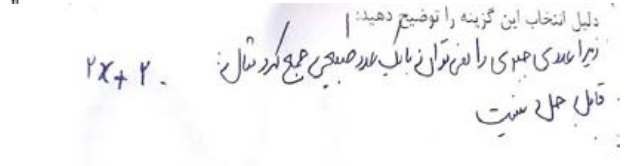 دلیل انتخاب این گزینه را توضیح دهید:
زیرا عددی جبری را نمی‌توان با یک عدد طبیعی جمع کرد مثال: ۲x + ۲۰
قابل حل نیست